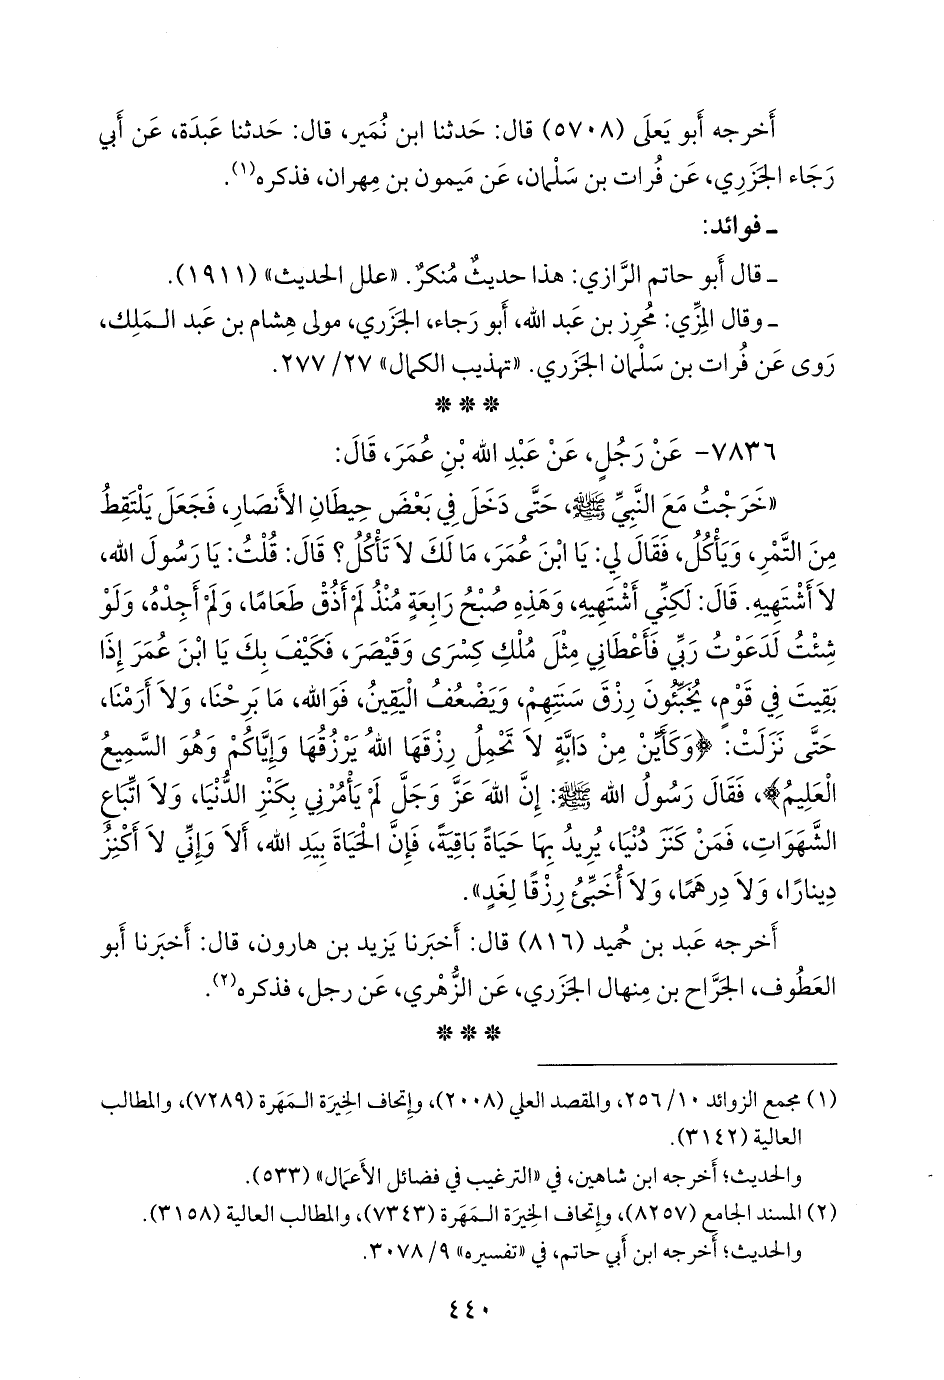 أخرجه أبو يَعلَى (٥٧٠٨) قال: حَدثنا ابن نُمَير، قال: حَدثنا عَبدَة، عَن أَبي
رَجَاء الجَزَري، عَن فُرات بن سَلْمان، عَن مَيمون بن مِهران، فذكره(١).
ـ فوائد:
ـ قال أَبو حاتم الرَّازي: هذا حديثٌ مُنكرٌ. «علل الحديث» (١٩١١).
ـ وقال المِزِّي: مُحرِز بن عَبد الله، أَبو رَجاء، الجَزَري، مولى هِشام بن عَبد الـمَلِك،
رَوى عَن فُرات بن سَلْمان الجَزَري. «تهذيب الكمال» ٢٧/ ٢٧٧.
* * *
٧٨٣٦- عَنْ رَجُلٍ، عَنْ عَبْدِ الله بْنِ عُمَرَ، قَالَ:
«خَرَجْتُ مَعَ النَّبِيِّ ﷺ، حَتَّى دَخَلَ فِي بَعْضَ حِيطَانِ الأَنصَارِ، فَجَعَلَ يَلْتَقِطُ
مِنَ التَّمْرِ، وَيَأْكُلُ، فَقَالَ لِي: يَا ابْنَ عُمَرَ، مَا لَكَ لاَ تَأْكُلُ؟ قَالَ: قُلْتُ: يَا رَسُولَ الله،
لاَ أَشْتَهِيهِ. قَالَ: لَكِنِّي أَشْتَهِيهِ، وَهَذِهِ صُبْحُ رَابِعَةٍ مُنْذُ لَمْ أَذُقْ طَعَامًا، وَلَمْ أَجِدْهُ، وَلَوْ
شِئْتُ لَدَعَوْتُ رَبِّي فَأَعْطَانِي مِثْلَ مُلْكِ كِسْرَى وَقَيْصَرَ، فَكَيْفَ بِكَ يَا ابْنَ عُمَرَ إِذَا
بَقِيتَ فِي قَوْمٍ، يُخَبِّئُونَ رِزْقَ سَنَتِهِمْ، وَيَضْعُفُ الْيَقِينُ، فَوَالله، مَا بَرِحْنَا، وَلاَ أَرَمْنَا،
حَتَّى نَزَلَتْ: ﴿وَكَأَيِّنْ مِنْ دَابَّةٍ لاَ تَحْمِلُ رِزْقَهَا اللهُ يَرْزُقُهَا وَإِيَّاكُمْ وَهُوَ السَّمِيعُ
الْعَلِيمُ﴾، فَقَالَ رَسُولُ الله ﷺ: إِنَّ اللهَ عَزَّ وَجَلَّ لَمْ يَأْمُرْنِي بِكَنْزِ الدُّنْيَا، وَلاَ اتِّبَاعِ
الشَّهَوَاتِ، فَمَنْ كَنَزَ دُنْيَا، يُرِيدُ بِهَا حَيَاةً بَاقِيَةً، فَإِنَّ الْحَيَاةَ بِيَدِ الله، أَلاَ وَإِنِّي لاَ أَكْنِزُ
دِينَارًا، وَلاَ دِرهَمًا، وَلاَ أُخَبِّئُ رِزْقًا لِغَدٍ».
أَخرجه عَبد بن حُميد (٨١٦) قال: أَخبَرنا يَزيد بن هارون، قال: أَخبَرنا أَبو
العَطُوف، الجَرَّاح بن مِنهال الجَزَري، عَن الزُّهْري، عَن رجل، فذكره(٢).
* * *
(١) مجمع الزوائد ١٠/ ٢٥٦، والمقصد العلي (٢٠٠٨)، وإتحاف الخِيرَة الـمَهَرة (٧٢٨٩)، والمطالب
العالية (٣١٤٢).
والحديث؛ أخرجه ابن شاهين، في «الترغيب في فضائل الأَعمال» (٥٣٣).
(٢) المسند الجامع (٨٢٥٧)، وإتحاف الخِيرَة الـمَهَرة (٧٣٤٣)، والمطالب العالية (٣١٥٨).
والحديث؛ أخرجه ابن أبي حاتم، في «تفسيره» ٩/ ٣٠٧٨.
٤٤٠